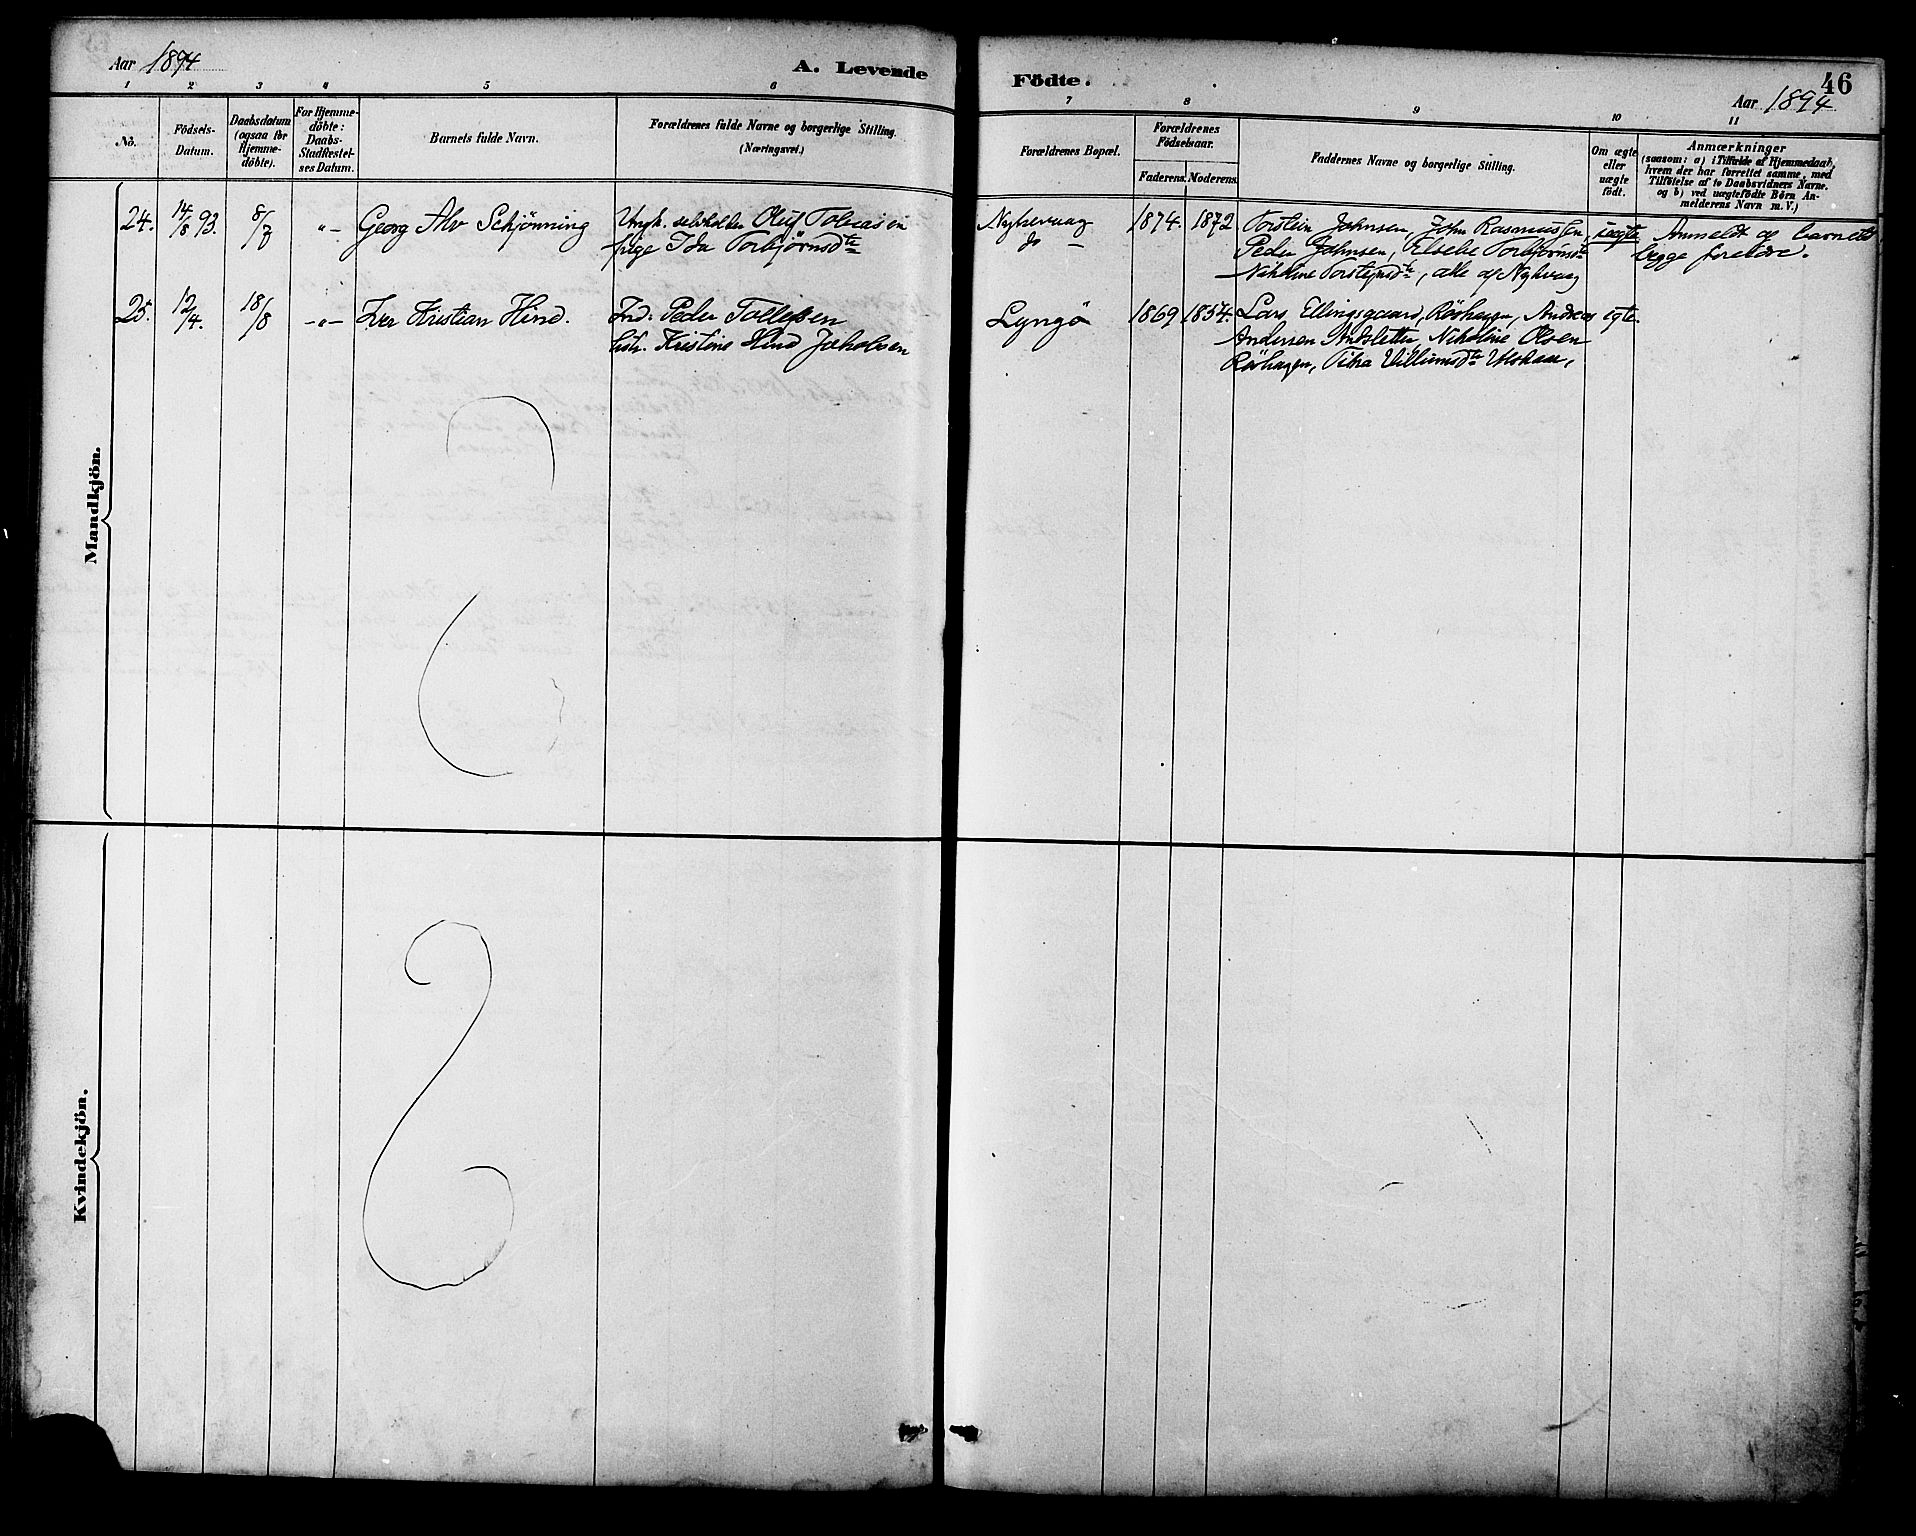 Aar 1894
A. Levende
Födte.
46
Aar 1894
1 2 3 4 5 6 7 8 9 10 11
No.
Födsels-
Datum.
Daabsdatum
(ogsaa for
Hjemme-
döbte).
For Hjemme-
döbte:
Daabs-
Stadfæstel-
ses Datum.
Barnets fulde Navn.
Forældrenes fulde Navne og borgerlige Stilling.
(Næringsvei.)
Forældrenes Bopæl.
Forældrenes
Födselsaar.
Faderens. Moderens.
Faddernes Navne og borgerlige Stilling.
Om ægte
eller
uægte
födt.
Anmærkninger
(saasom: a) i Tilfælde af Hjemmedaab,
hvem der har forrettet samme, med
Tilföielse af to Daabsvidners Navne.
og b) ved uægtefödte Börn An-
melderens Navn m. V.)
Mandkjön.
24. 14/8 93. 8/7 "- Georg Alv Schjønning
Ungk. Oluf Tobiasen
pige Ida Torbjørnsdtr
do
1874. 1872
Torstein Johnsen, John Rasmussen,
Peder Johnsen, Elsebe Torbjørnsdtr
Torstejnsdtr, alle af
uægte
Anmeldt af barnets
begge foreldre.
25. 12/4. 18/8 -"- Iver Kristian Hind.
Ind. Peder Tollefsen
hstr. Kristine Hind Jakobsen
Lyngö
1869 1854.
Lars Ellingsgaard, Röshagen, Andreas
Andersen Nikoline Olsen
Röshagen, Villumsdtr
egte.
Kvindekjön.